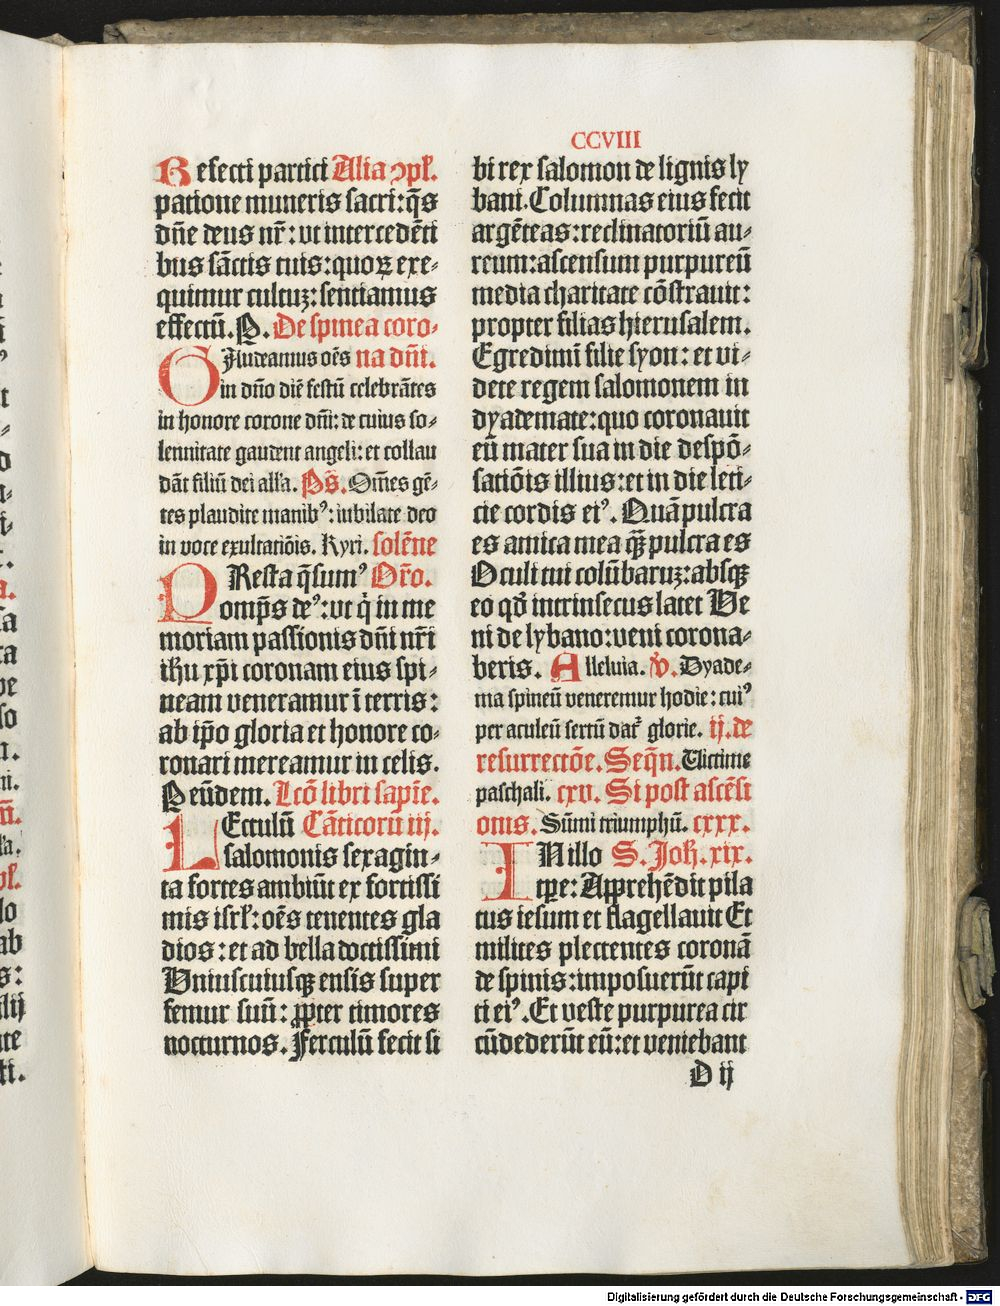 CCVIII
Refecti partici Alia ↄpl̄.
patione muneris sacri: q̄s
dn̄e deus nr̄: vt intercedēti
bus sāctis tuis: quoꝝ exe⸗
quimur cultuꝫ: sentiamus
effectū. P. De spinea coro⸗
GAudeamus oēs na dn̄i.
in dn̄o diē festū celebrātes
in honore corone dn̄i: de cuius so⸗
lennitate gaudent angeli: et collau
dāt filiū dei all'a. Ps̄. Om̄es gē⸗
tes plaudite manibꝰ: iubilate deo
in voce exultatiōis. Kyri. solēne
PResta q̄sumꝰ Or̄o.
omp̄s deꝰ: vt q̇ in me
moriam passionis dn̄i nr̄i
ihū xp̄i coronam eius spi⸗
neam veneramur ī terris:
ab ip̄o gloria et honore co⸗
ronari mereamur in celis.
Peūdem. Lcō libri sapīe.
LEctulū Cāticorū iij.
salomonis sexagin⸗
ta fortes ambiūt ex fortissi
mis isrl̄: oēs tenentes gla
dios: et ad bella doctissimi
Vniuscuiusqꝫ ensis super
femur suū: ꝓpter timores
nocturnos. Ferculū fecit si
bi rex salomon de lignis ly
bani. Columnas eius fecit
argēteas: reclinatoriū au⸗
reum: ascensum purpureū
media charitate cōstrauit:
propter filias hierusalem.
Egredimī filie syon: et vi⸗
dete regem salomonem in
dyademate: quo coronauit
eū mater sua in die despō⸗
satiōis illius: et in die leti⸗
cie cordis eiꝰ. Quā pulcra
es amica mea q̄ꝫ pulcra es
Oculi tui colūbaruꝫ: absqꝫ
eo qd̄ intrinsecus latet Ve
ni de lybano: veni corona⸗
beris. Alleluia. v̄. Dyade⸗
ma spineū veneremur hodie: cuiꝰ
per aculeū sertū dat᷑ glorie. ij. de
resurrectōe. Seq̄n. Victime
paschali. cxv. Si post ascēsi
onis. Sūmi triumphū. cxxx.
IN illo S. Joh. xix.
tꝑe: Apprehēdit pila
tus iesum et flagellauit Et
milites plectentes coronā
de spinis: imposuerūt capi
ti eiꝰ. Et veste purpurea cir
cūdederūt eū: et veniebant
D ij
Digitalisierung gefördert durch die Deutsche Forschungsgemeinschaft - DFG